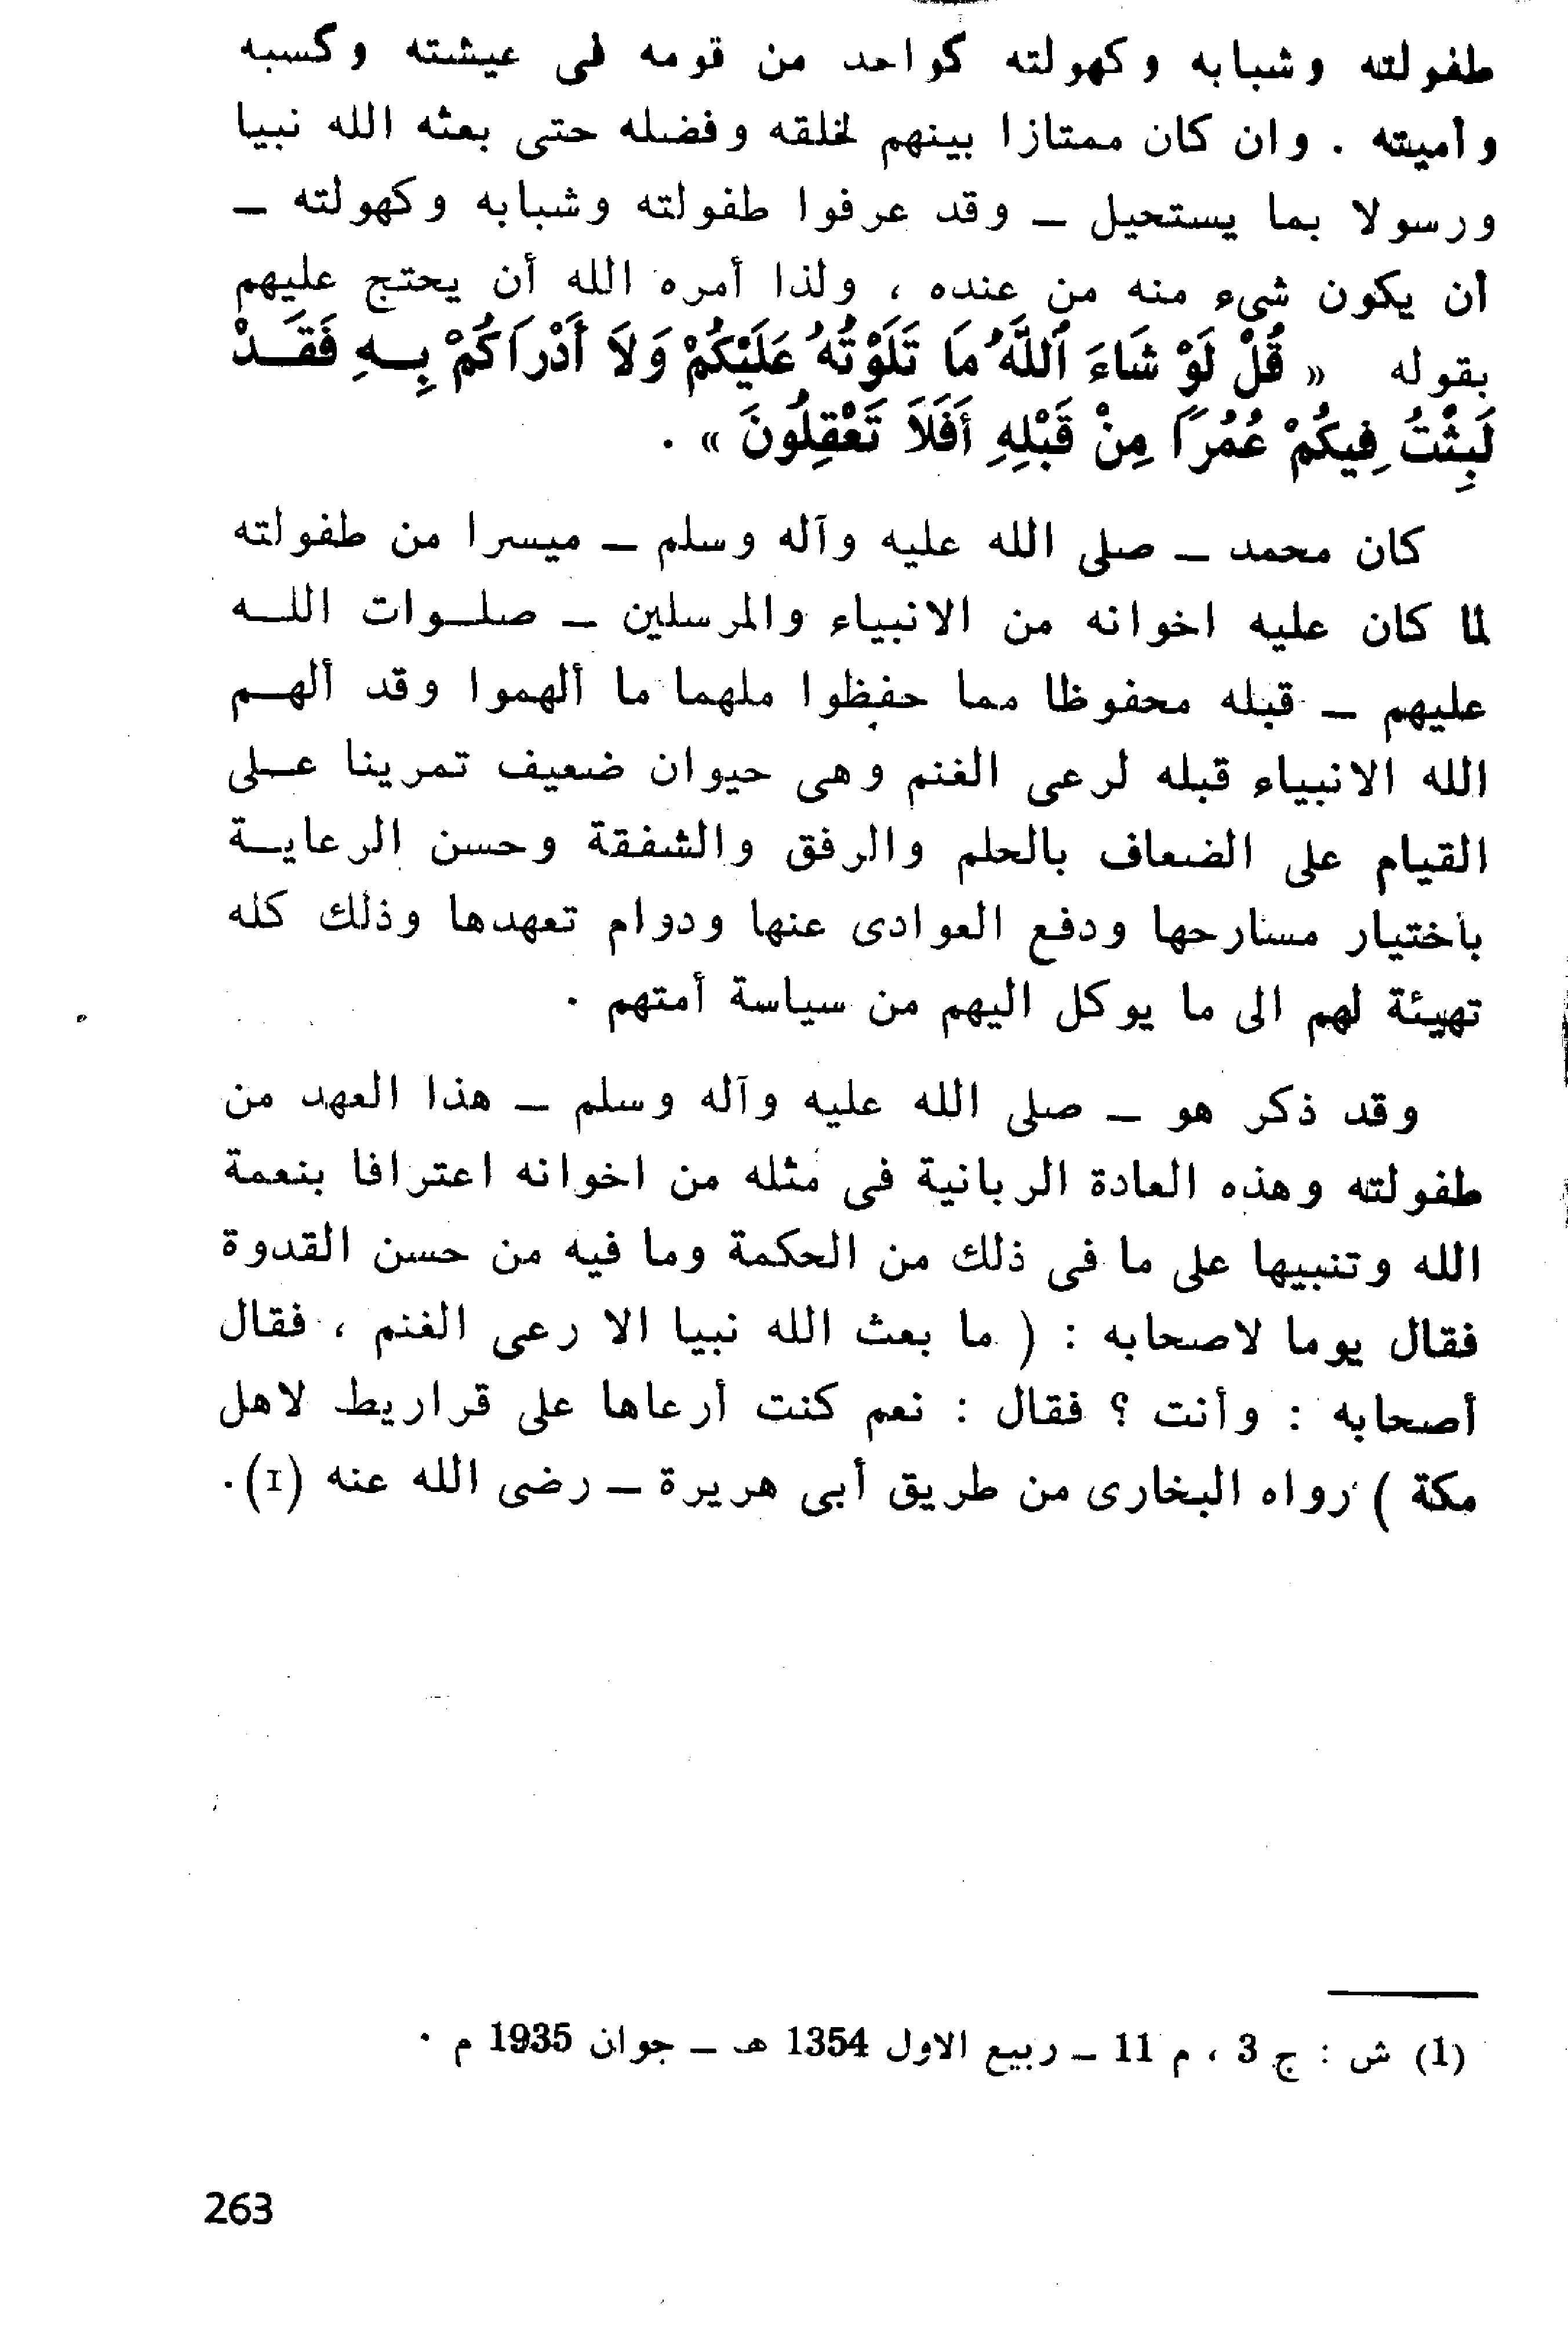 طفولته وشبابه وكهولته كواحد من قومه فى عيشته وكسبه
وأميته . وان كان ممتازا بينهم لخلقه وفضله حتى بعثه الله نبيا
ورسولا بما يستحيل – وقد عرفوا طفولته وشبابه وكهولته –
أن يكون شىء منه من عنده ، ولذا أمره الله أن يحتج عليهم
بقوله « قُلْ لَوْ شَاءَ ٱللَّهُ مَا تَلَوْتُهُ عَلَيْكُمْ وَلَا أَدْرَاكُمْ بِـهِ فَقَـدْ
لَبِثْتُ فِيكُمْ عُمُرًا مِنْ قَبْلِهِ أَفَلَا تَعْقِلُونَ » .
كان محمد – صلى الله عليه وآله وسلم – ميسرا من طفولته
لما كان عليه اخوانه من الانبياء والمرسلين – صلـوات اللـه
عليهم – قبله محفوظا مما حفظوا ملهما ما ألهموا وقد ألهـم
الله الانبياء قبله لرعى الغنم وهى حيوان ضعيف تمرينا عـلى
القيام على الضعاف بالحلم والرفق والشفقة وحسن الرعايـة
باختيار مسارحها ودفع العوادى عنها ودوام تعهدها وذلك كله
تهيئة لهم الى ما يوكل اليهم من سياسة أمتهم .
وقد ذكر هو – صلى الله عليه وآله وسلم – هذا العهد من
طفولته وهذه العادة الربانية فى مثله من اخوانه اعترافا بنعمة
الله وتنبيها على ما فى ذلك من الحكمة وما فيه من حسن القدوة
فقال يوما لاصحابه : ( ما بعث الله نبيا الا رعى الغنم ، فقال
أصحابه : وأنت ؟ فقال : نعم كنت أرعاها على قراريط لاهل
مكة ) رواه البخارى من طريق أبى هريرة – رضى الله عنه (1).
(1) ش : ج 3 ، م 11 – ربيع الاول 1354 هـ – جوان 1935 م .
263